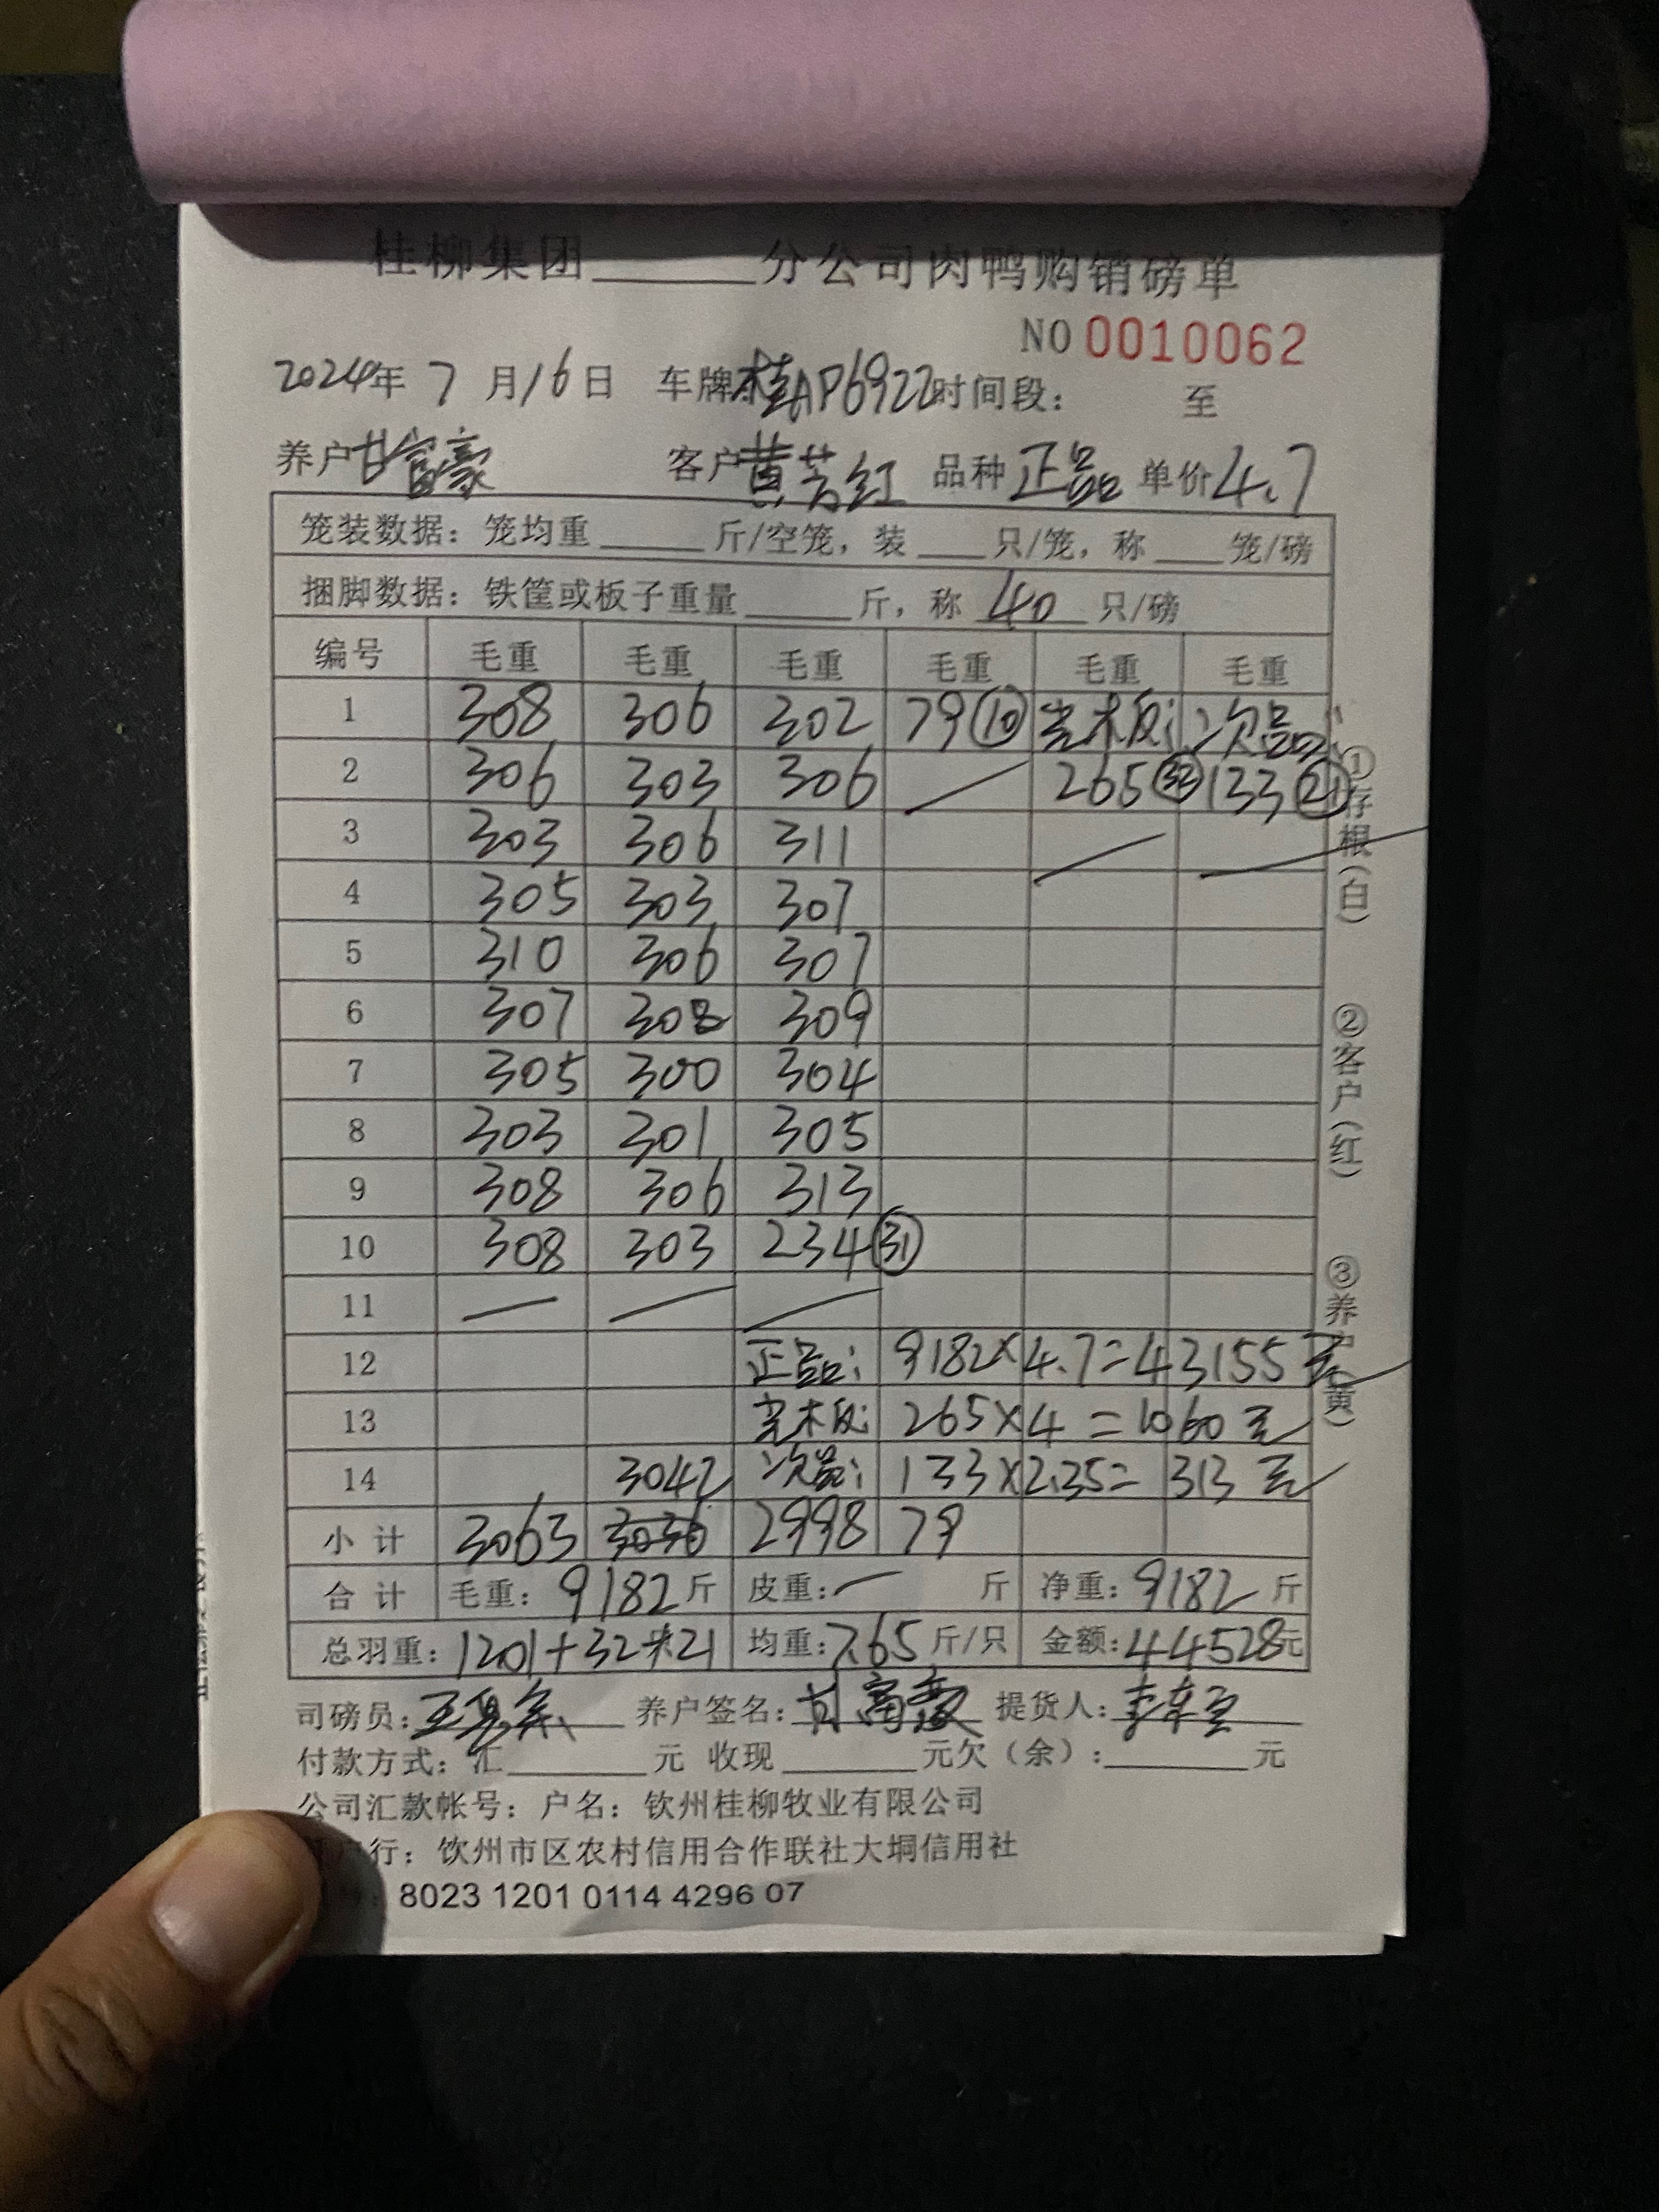 桂柳集团______分公司肉鸭购销磅单
NO 0010062
2024年 7 月16日 车牌:桂AP6922时间段: 至
养户甘富豪 客户黄芳红 品种 正品 单价4.7
笼装数据: 笼均重______斤/空笼, 装____只/笼, 称____笼/磅
捆脚数据: 铁筐或板子重量______斤, 称 40 只/磅
编号 毛重 毛重 毛重 毛重 毛重 毛重
1 308 306 302 79⑩ 木板: 次品:
2 306 303 306 / 265㉜ 133㉑
3 303 306 311
4 305 303 307
5 310 306 307
6 307 308 309
7 305 300 304
8 303 301 305
9 308 306 313
10 308 303 234㉛
11
12 正品: 9182×4.7=43155元
13 木板: 265×4=1060元
14 3042 次品: 133×2.35=313元
小计 3063 3036 2998 79
合计 毛重: 9182斤 皮重: 一 斤 净重: 9182斤
总羽重: 1201+32+21 均重:7.65斤/只 金额:44528元
司磅员: 养户签名:甘富豪 提货人:
付款方式: 汇______元 收现______元欠(余):______元
公司汇款帐号: 户名: 钦州桂柳牧业有限公司
行: 钦州市区农村信用合作联社大垌信用社
8023 1201 0114 4296 07
①存根(白) ②客户(红) ③养户(黄)